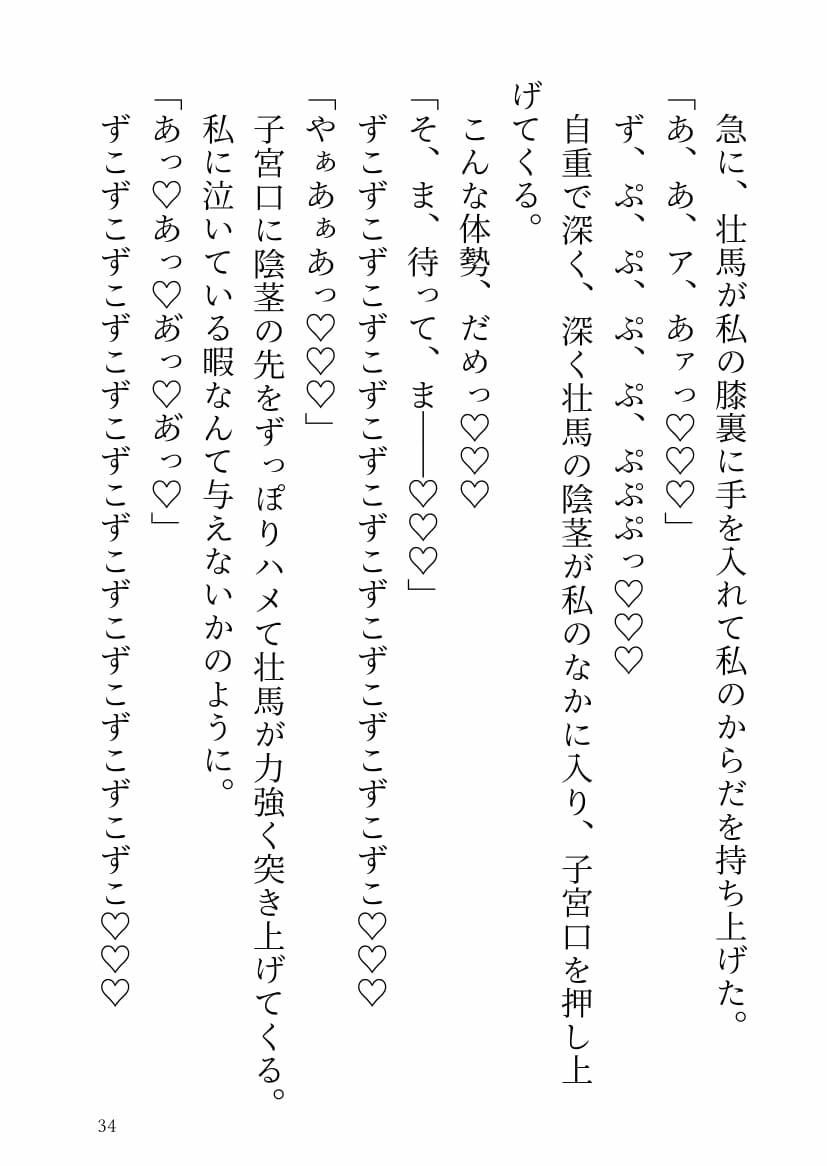 急に、壮馬が私の膝裏に手を入れて私のからだを持ち上げた。
「あ、あ、ア、あァっ♡♡♡」
ず、ぷ、ぷ、ぷ、ぷ、ぷぷぷっ♡♡♡
自重で深く、深く壮馬の陰茎が私のなかに入り、子宮口を押し上
げてくる。
こんな体勢、だめっ♡♡♡
「そ、ま、待って、ま――♡♡♡」
ずこずこずこずこずこずこずこずこずこずこずこずこ♡♡♡
「やぁあぁあっ♡♡♡」
子宮口に陰茎の先をずっぽりハメて壮馬が力強く突き上げてくる。
私に泣いている暇なんて与えないかのように。
「あっ♡あっ♡あ゛っ♡あ゛っ♡」
ずこずこずこずこずこずこずこずこずこずこずこずこ♡♡♡
34